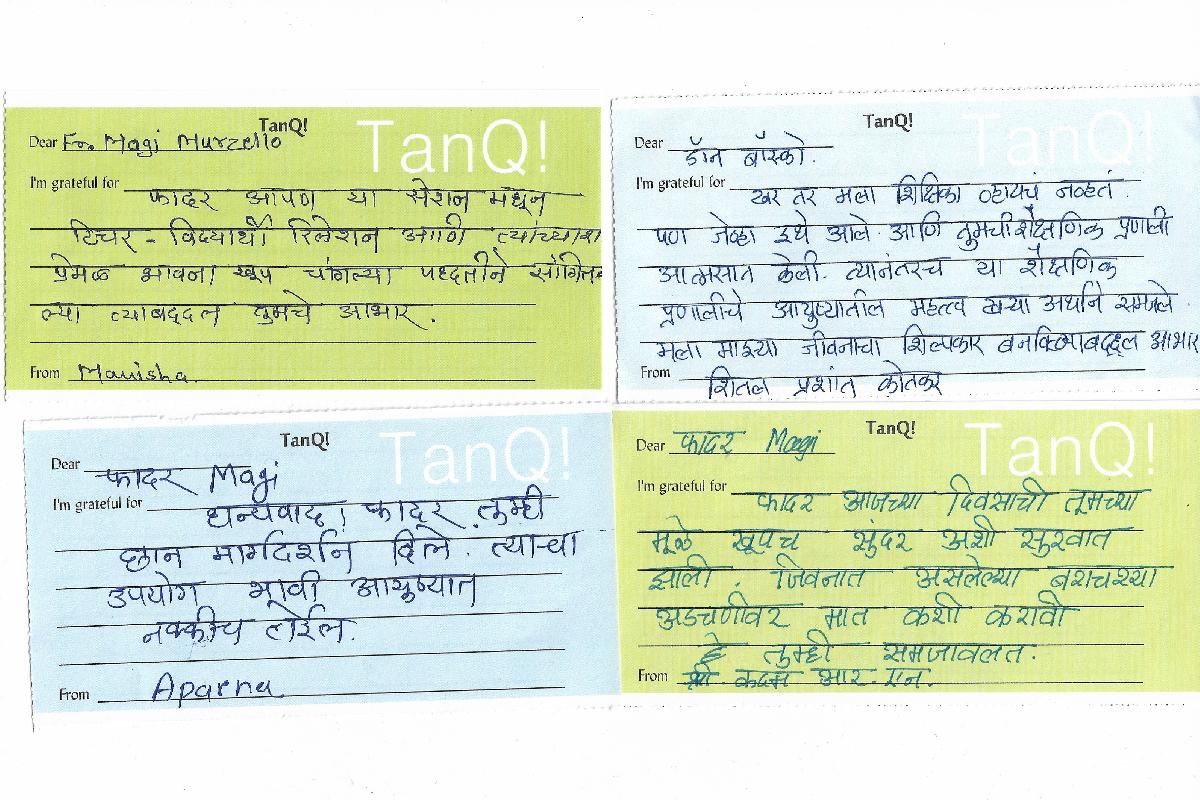 TanQ!
TanQ!
Dear Fr. Magi Murzello
I'm grateful for फादर आपण या सेशन मधून
टिचर - विद्यार्थी रिलेशन आणि त्यांच्याश
प्रेमळ भावना खूप चांगल्या पध्दतीने सांगितल
ल्या त्याबद्दल तुमचे आभार.
From Manisha.
TanQ!
TanQ!
Dear डॉन बॉस्को.
I'm grateful for खर तर मला शिक्षिका व्हायचं नव्हतं.
पण जेव्हा इथे आले. आणि तुमची शैक्षणिक प्रणाली
आत्मसात केली. त्यानंतरच या शैक्षणिक
प्रणालीचे आयुष्यातील महत्त्व खऱ्या अर्थाने समजले.
मला माझ्या जीवनाचा शिल्पकार आभार
From शितल प्रशांत कोतकर
TanQ!
TanQ!
Dear फादर Magi
I'm grateful for धन्यवाद! फादर तुम्ही
छान मार्गदर्शन दिले. त्याचा
उपयोग भावी आयुष्यात
नक्कीच होईल.
From Aparna
TanQ!
TanQ!
Dear फादर Magi
I'm grateful for फादर आजच्या दिवसाची तूमच्या
मूळे खूपच सुंदर अशी सुरवात
झाली. जिवनात असलेल्या बराचश्या
अडचणीवर मात कशी करावी
हे तुम्ही समजावलत.
From कदम आर. एन.